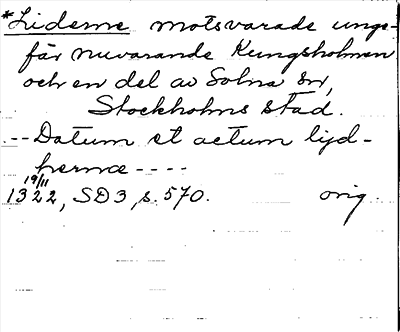 *Liderne motsvarade unge-
fär nuvarande Kungsholmen
och en del av Solna sn,
Stockholms stad.
-- Datum et actum lijd-
herne ----
19/11
1322, SD3, s. 570. orig.